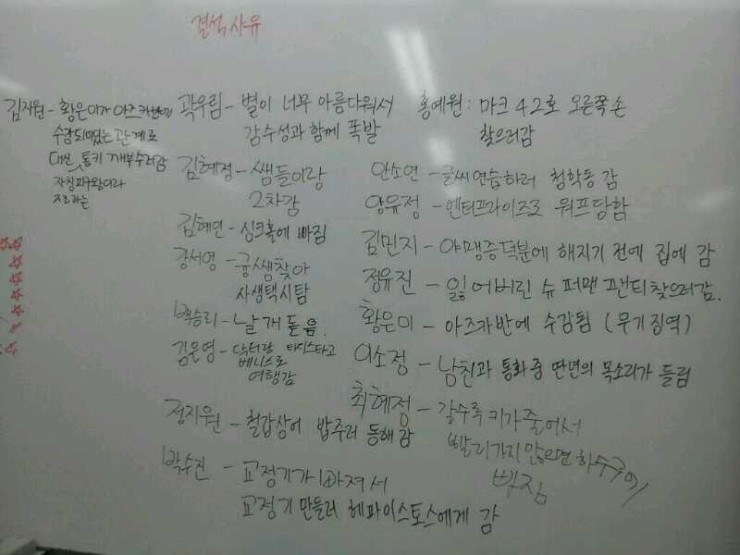 결석사유
김지원 - 황은미가 아즈카반에
수감되었는 관계로
대신
자칭피구왕이라
곽우림 - 별이 너무 아름다워서
감수성과 함께 폭발
홍예원 : 마크 42호 오른쪽 손
찾으러감
김혜정 - 쌤들이랑
2차감
안소연 - 글씨연습하러 청학동 감
양유정 - 엔터프라이즈호 워프당함
김혜연 - 싱크홀에 빠짐
김민지 - 야맹증덕분에 해지기 전에 집에 감
강서영 - 궁쌤찾아
사생택시탐
정유진 - 잃어버린 슈퍼맨 팬티찾으러감.
박승리 - 날개돋음.
황은미 - 아즈카반에 수감됨 (무기징역)
김윤영 - 닥터랑 타디스타고
베니스로
여행감
이소정 - 남친과 통화중 딴년의 목소리가 들림
최혜정 - 갈수록 키가줄어서
빨리가지 않으면 하수구에
빠짐
정지원 - 철갑상어 밥주러 동해 감
박수진 - 교정기가 빠져서
교정기 만들러 헤파이스토스에게 감